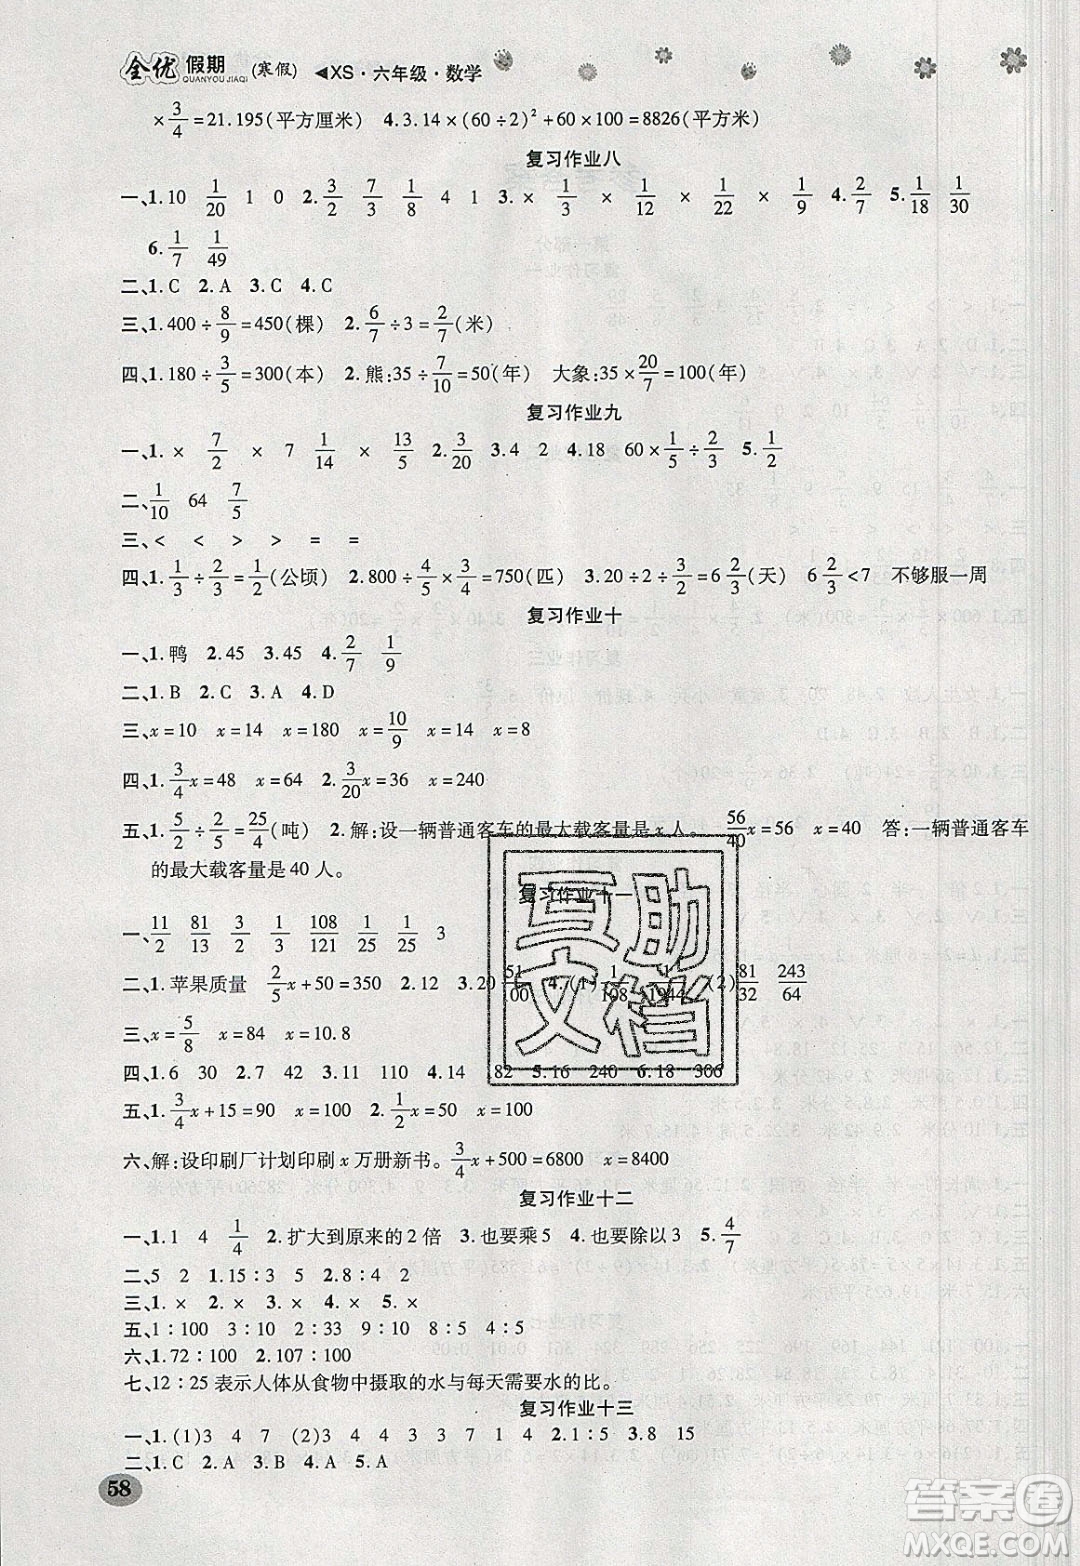 全优假期(寒假) QUANYOU JIAQI ◀XS·六年级·数学
×3/4=21.195(平方厘米) 4.3.14×(60÷2)²+60×100=8826(平方米)
复习作业八
一、1.10 1/20 1 0 2.3/2 7/3 1/8 4 1 3.× 1/3 × 1/12 × 1/22 × 1/9 4.2/7 5.1/18 1/30
6.1/7 1/49
二、1.C 2.A 3.C 4.C
三、1.400÷8/9=450(棵) 2.6/7÷3=2/7(米)
四、1.180÷3/5=300(本) 2.熊:35÷7/10=50(年) 大象:35×20/7=100(年)
复习作业九
一、1.× 7/2 × 7 1/14 × 13/5 2.3/20 3.2/3 4.18 60×1/5÷2/3 5.1/2
二、1/10 64 7/5
三、< < > > = =
四、1.1/3÷2/3=1/2(公顷) 2.800÷4/5×3/4=750(匹) 3.20÷2÷3/2=6 2/3(天) 6 2/3<7 不够服一周
复习作业十
一、1.鸭 2.45 3.45 4.2/7 1/9
二、1.B 2.C 3.A 4.D
三、x=10 x=14 x=180 x=10/9 x=14 x=8
四、1.3/4x=48 x=64 2.3/20x=36 x=240
五、1.5/2÷2/5=25/4(吨) 2.解:设一辆普通客车的最大载客量是x人。 56/40x=56 x=40 答:一辆普通客车
的最大载客量是40人。
复习作业十一
一、11/2 81/13 3/2 1/25 108/121 1/25 3
二、1.苹果质量 2/5x+50=350 2.12 3.20 51/100 4.(1)1/108 1/1944 (2)81/32 243/64
三、x=5/8 x=84 x=10.8
四、1.6 30 2.15 27 3.11 110 4.14 82 5.16 240 6.18 306
五、1.3/4x+15=90 x=100 2.1/2x=50 x=100
六、解:设印刷厂计划印刷x万册新书。3/4x+500=6800 x=8400
复习作业十二
一、1.1 4 1/4 2.扩大到原来的2倍 3.也要乘5 4.也要除以3 5.4/7
二、5 2 1.15∶8 2.8∶4
三、1.× 2.× 3.× 4.× 5.×
五、1∶8 9∶10 2∶33 9∶8 4∶5
六、1.72∶100 2.107∶100
七、12∶25表示人体从食物中摄取的水与每天需要水的比。
复习作业十三
一、1.(1)3 7 (2)3 4 (3)4 3 3 7 1 4 2.1∶5 3.8 15
二、1.C 2.A 3.C 4.A 5.A
58
互助
文档
答案圈
MXQE.COM